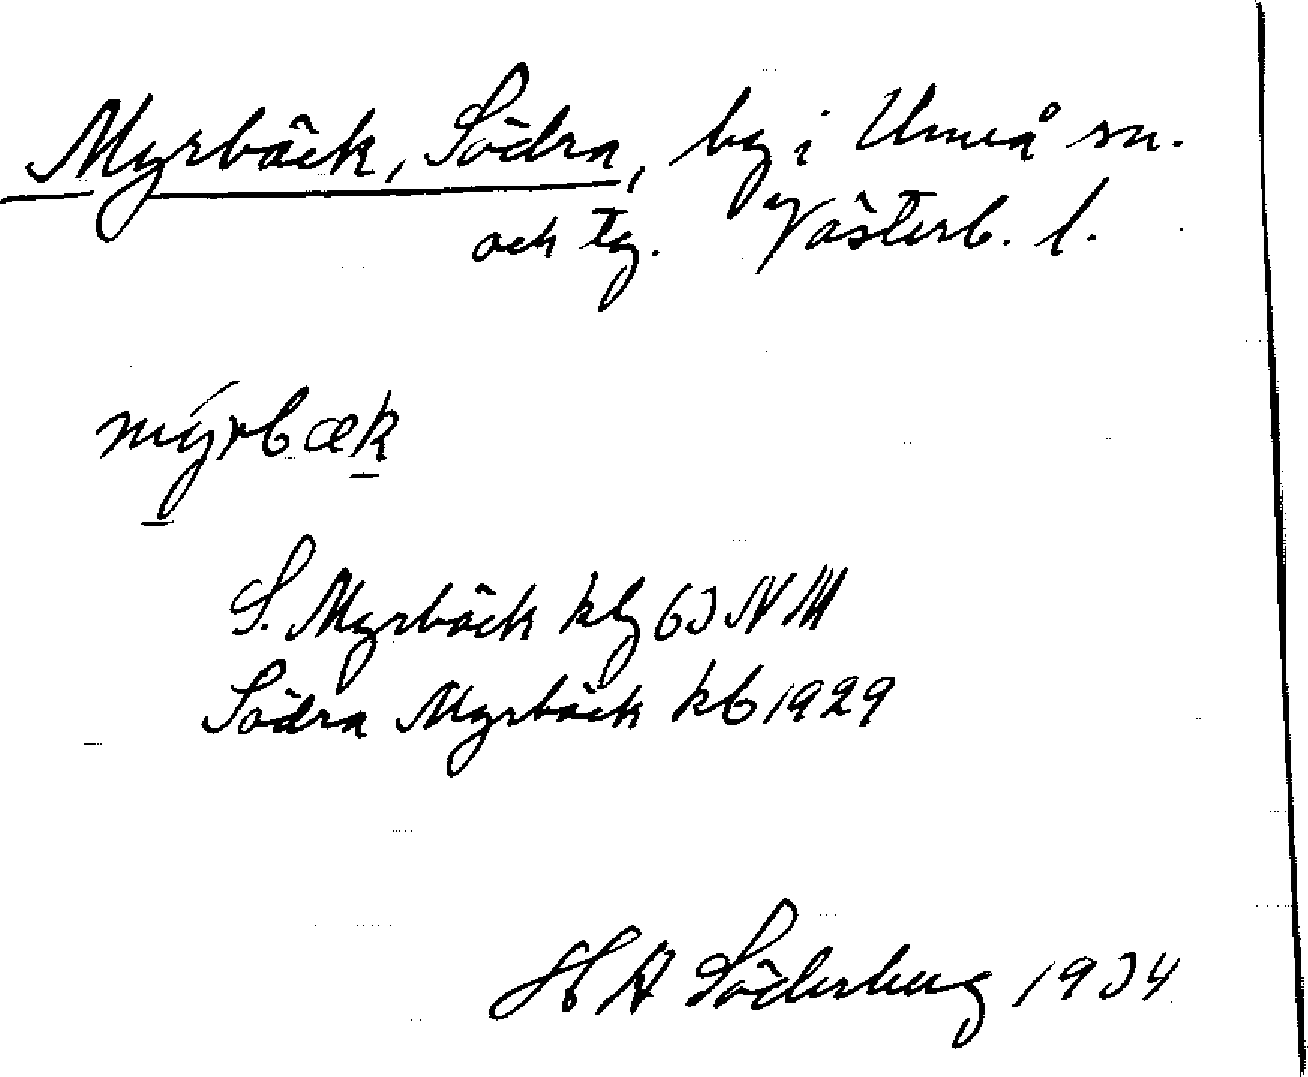 Myrbäck, Södra, by i Umeå sn.
och tg. Västerb. l.
mýrbæk
S. Myrbäck kbg 63 NV
Södra Myrbäck kb 1929
H A Söderberg 1934